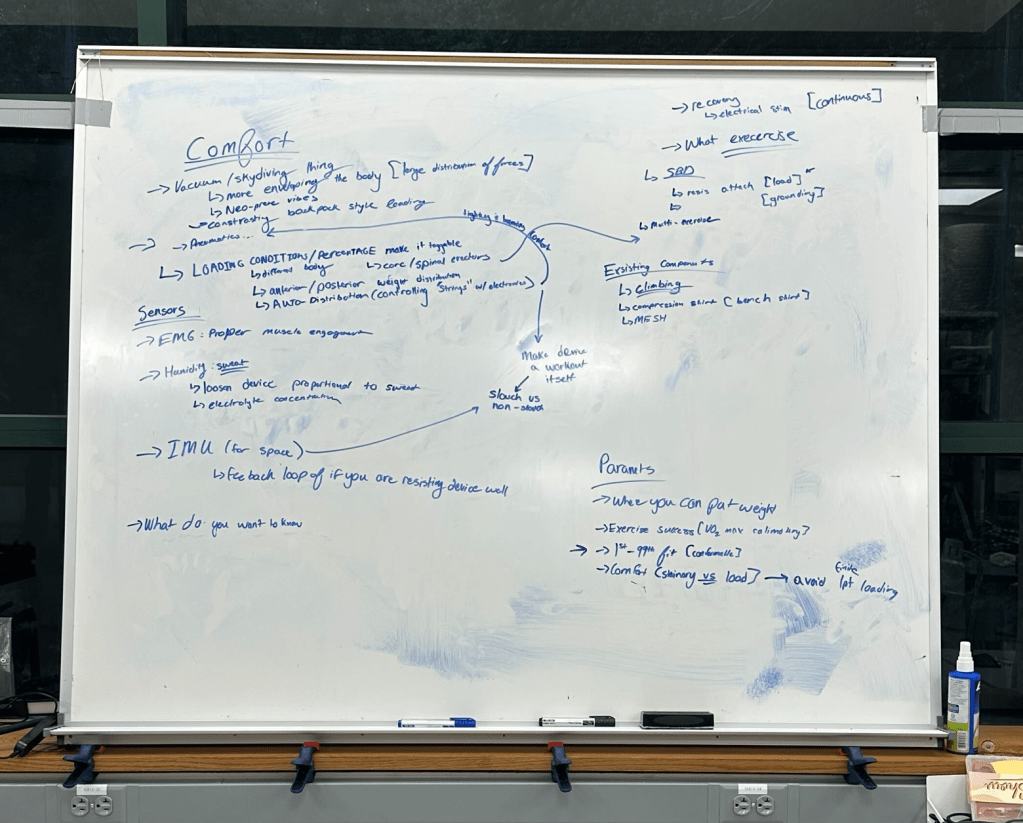 Comfort
→ Vacuum/skydiving thing
↳ more enveloping the body [large distribution of forces]
↳ Neo-prene vibes
→ constrasting backpack style loading
→ → Pneumatics...
↳ LOADING CONDITIONS/PERCENTAGE make it toggable
↳ different body ↳ core/spinal erectors
↳ anterior/posterior weight distribution
↳ AUTO-Distribution (controlling "strings" w/ electronics)
Sensors
→ EMG: Proper muscle engagement
→ Humidity: sweat
↳ loosen device proportional to sweat
↳ electrolyte concentration
→ IMU (for space)
↳ feedback loop of if you are resisting device well
→ What do you want to know
Make device
a workout
itself
slouch vs
non-slouch
→ recovery [continuous]
↳ electrical stim
→ What excercise
↳ SBD
↳ resis attach [load]
↳ [grounding]
↳ Multi-exercise
Exsisting Components
↳ Climbing
↳ compression shirt [bench shirt]
↳ MESH
→ Where you can put weight
→ Exercise success [VO₂ max
→ → 1st-99th fit
→ Comfort vs load] → avoid 1pt loading